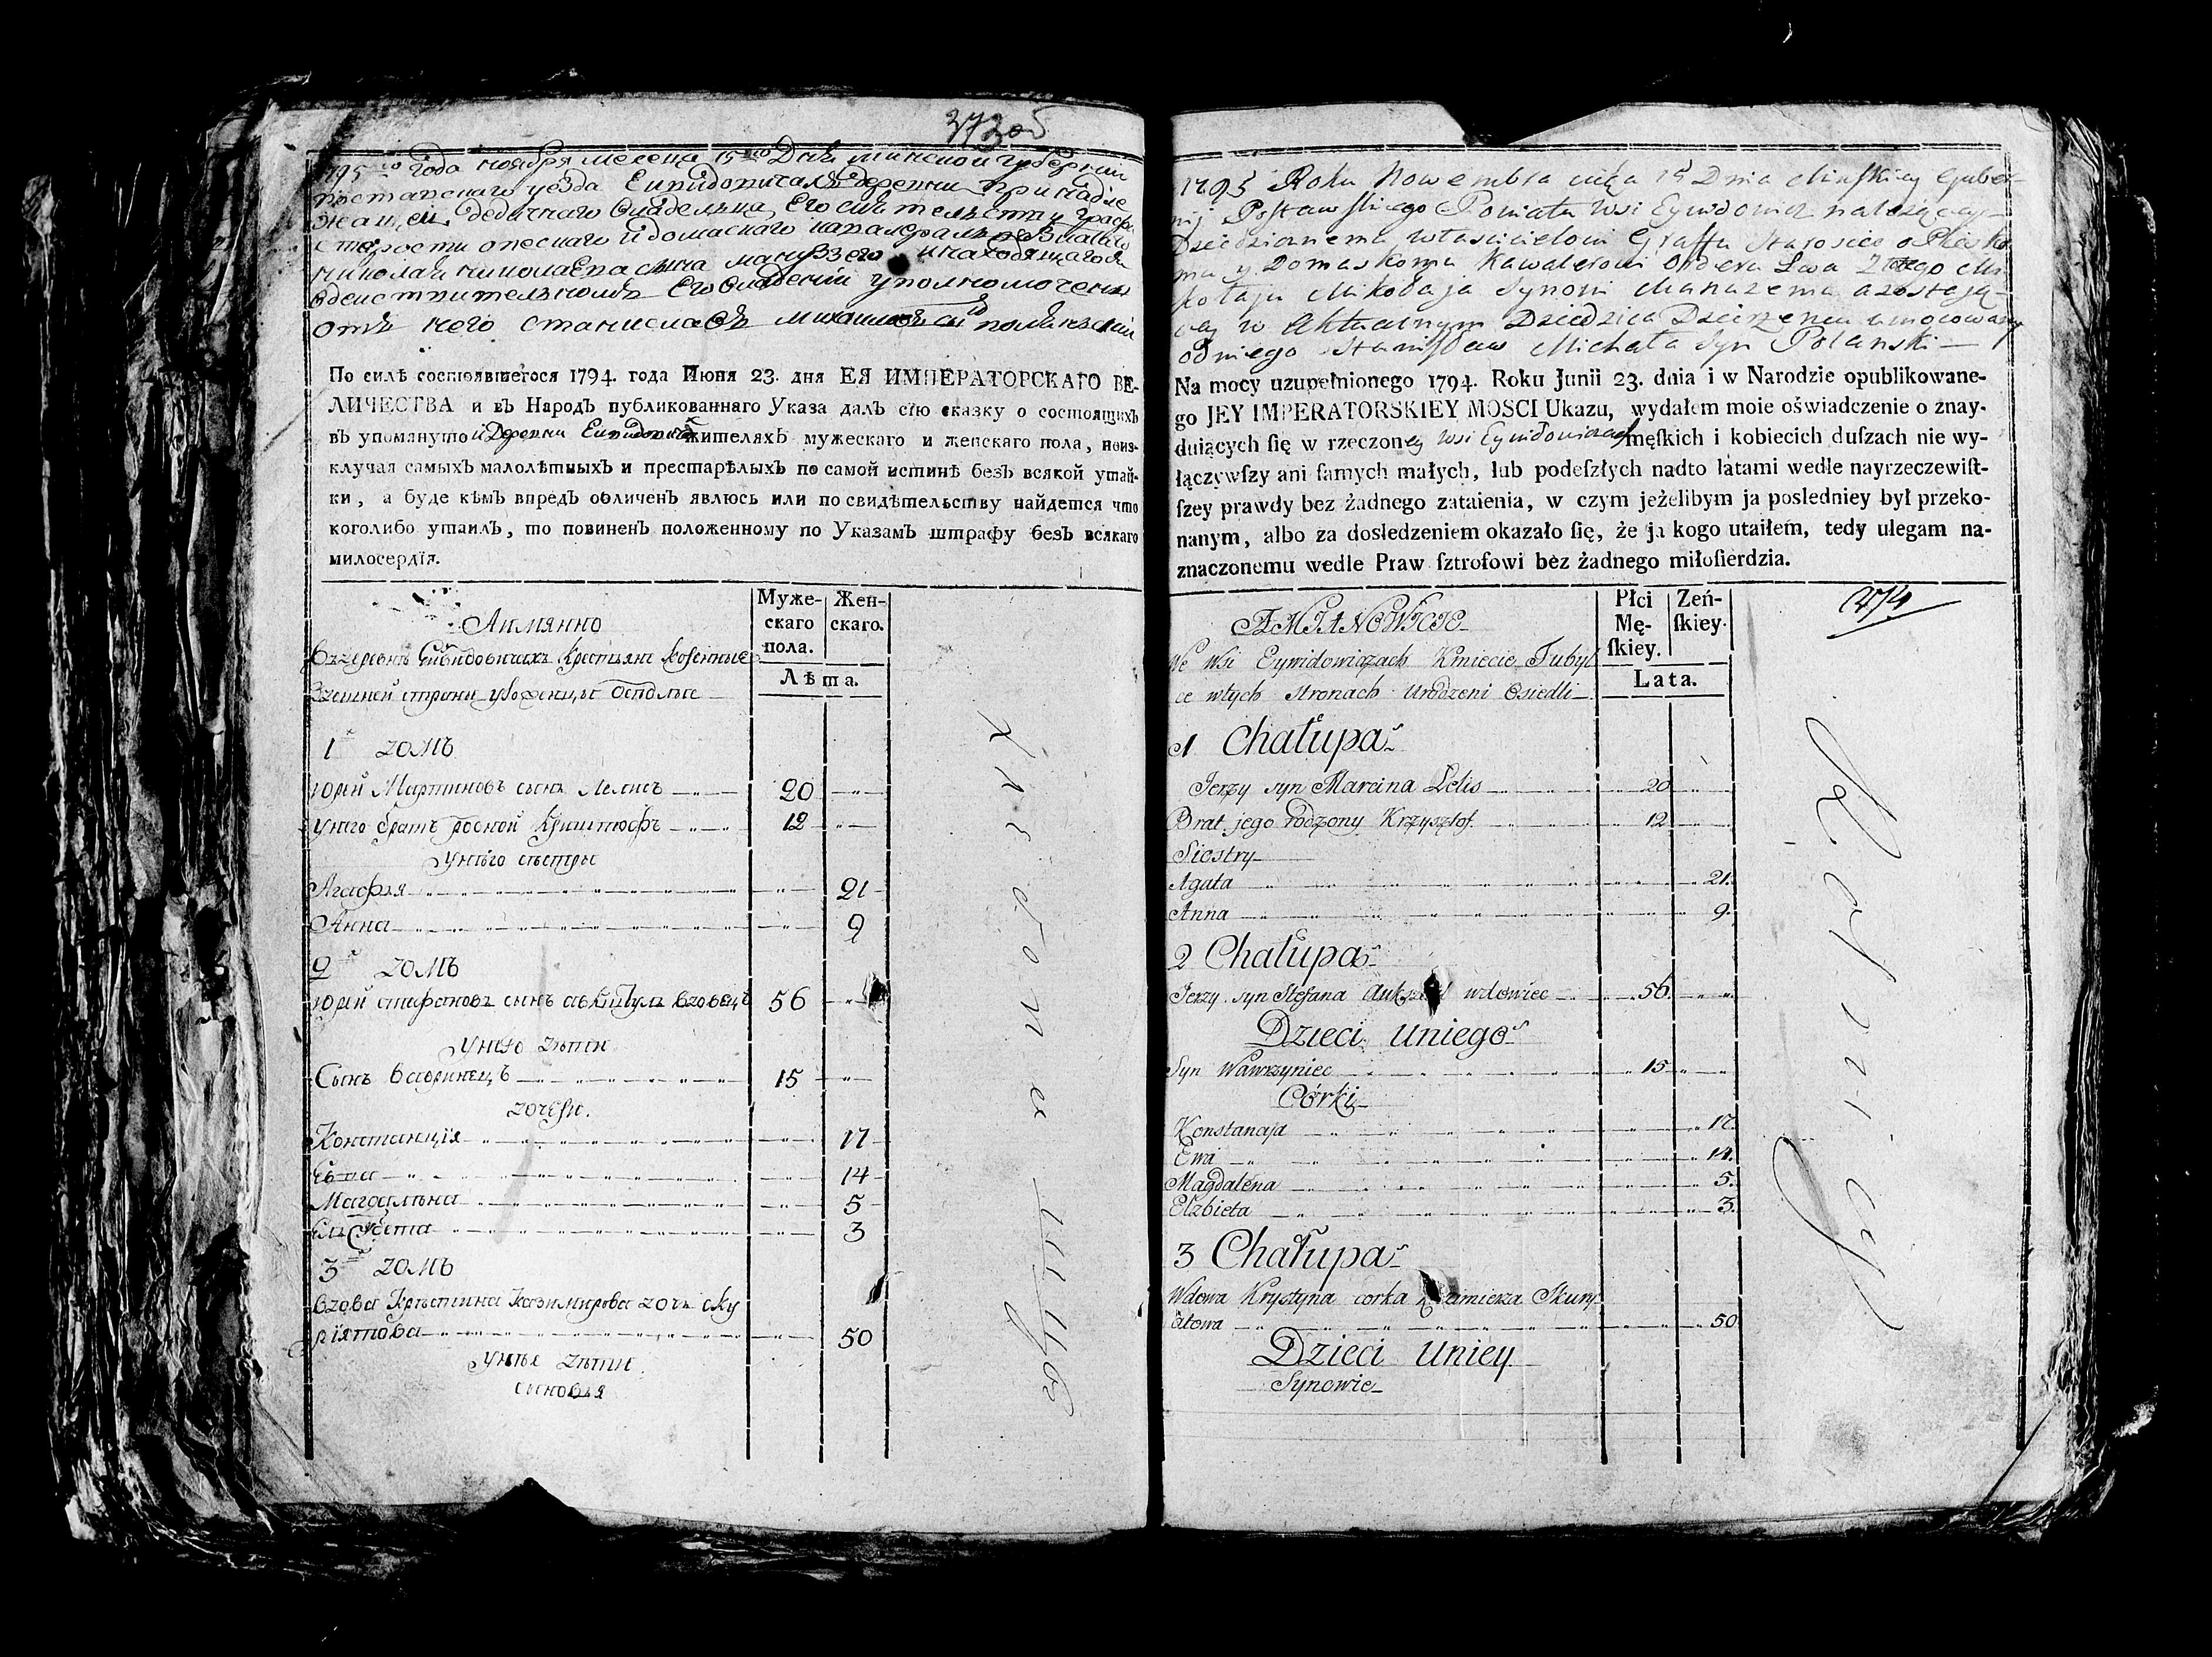 373об
1795го года ноября месеца 15го Дня минской губернии
поставскаго уезда Ейвидовичахъ деревни принадле
жащей дедичнаго владельца Его сиятельству графа
старости опескаго и домаскаго кавалера
николая николаева сына мануззего и находящагося
вдействительномъ Его владении уполномочены
отъ него станиславъ михаиловъ сынъ полянский
По силѣ состоявшегося 1794. года Июня 23. дня ЕЯ ИМПЕРАТОРСКАГО ВЕ-
ЛИЧЕСТВА и въ Народъ публикованнаго Указа далъ сїю сказку о состоящихъ
въ упомянутой Деревни жителяхъ мужескаго и женскаго пола, неиз-
ключая самыхъ малолѣтныхъ и престарѣлыхъ по самой истинѣ безъ всякой утай-
ки, а буде кѣмъ впредь обличенъ явлюсь или по свидѣтельству найдется что
коголибо утаилъ, то повиненъ положенному по Указамъ штрафу безъ всякаго
милосердїя.
Аимянно
Муже-
скаго
пола.
Жен-
скаго.
Лѣта.
Вдеревнѣ Ейвидовичахъ Крестьяне
Вздешней стороне
1й домъ
юрій Мартиновъ сынъ Лелисъ 20
унего братъ родной Криштофъ 12
унѣго сѣстры
Агафья 21
Анна 9
2й домъ
юрій стифановъ сынъ вдовецъ 56
унего дѣти
Сынъ Вавринецъ 15
дочери
Констанція 17
Ева 14
Магдалѣна 5
Елисавета 3
3й домъ
вдова Крыстина Казимирова дочь ску
ріятова 50
унѣе дѣти
сыновья
1795 Roku Nowembra mca 15 Dnia Minskiey Guber-
nij Postawskiego Powiatu Wsi Eywidowicz nalezącey
Dziedzicznemu własicielowi Graffu Staroscie opeskie
mu y Domaskomu Kawalerowi Ordera Lwa Złotego Mi
kołaju Mikołaja Synowi Manuzemu a zostają
cey w Aktualnym Dziedzica Dzierzeniu umocowany
od niego Stanisław Michała Syn Polanski
Na mocy uzupełnionego 1794. Roku Junii 23. dnia i w Narodzie opublikowane-
go JEY IMPERATORSKIEY MOSCI Ukazu, wydałem moie oświadczenie o znay-
duiących ſię w rzeczoney Wsi Eywidowiczach męſkich i kobiecich duſzach nie wy-
łączywſzy ani ſamych małych, lub podeſzłych nadto latami wedle nayrzeczewiſt-
ſzey prawdy bez żadnego zataienia, w czym jeżelibym ja posledniey był przeko-
nanym, albo za dosledzeniem okazało ſię, że ja kogo utaiłem, tedy ulegam na-
znaczonemu wedle Praw ſztrofowi bez żadnego miłoſierdzia.
AMIANOWICIE
Płci
Mę-
ſkiey.
Zeń-
ſkiey.
Lata.
374
We Wsi Eywidowiczach Kmiecie Tubyl
ce wtych stronach urodzeni Osiedli
1 Chałupa
Jerzy syn Marcina Lelis 20
Brat jego rodzony Krzysztof 12
Siostry
Agata 21
Anna 9
2 Chałupa
Jerzy syn Stefana wdowiec 56
Dzieci uniego
Syn Wawrzyniec 15
Córki
Konstancja 17
Ewa 14
Magdalena 5
Elżbieta 3
3 Chałupa
Wdowa Krystyna corka Kazimierza Skury
atowa 50
Dzieci uniey
Synowie